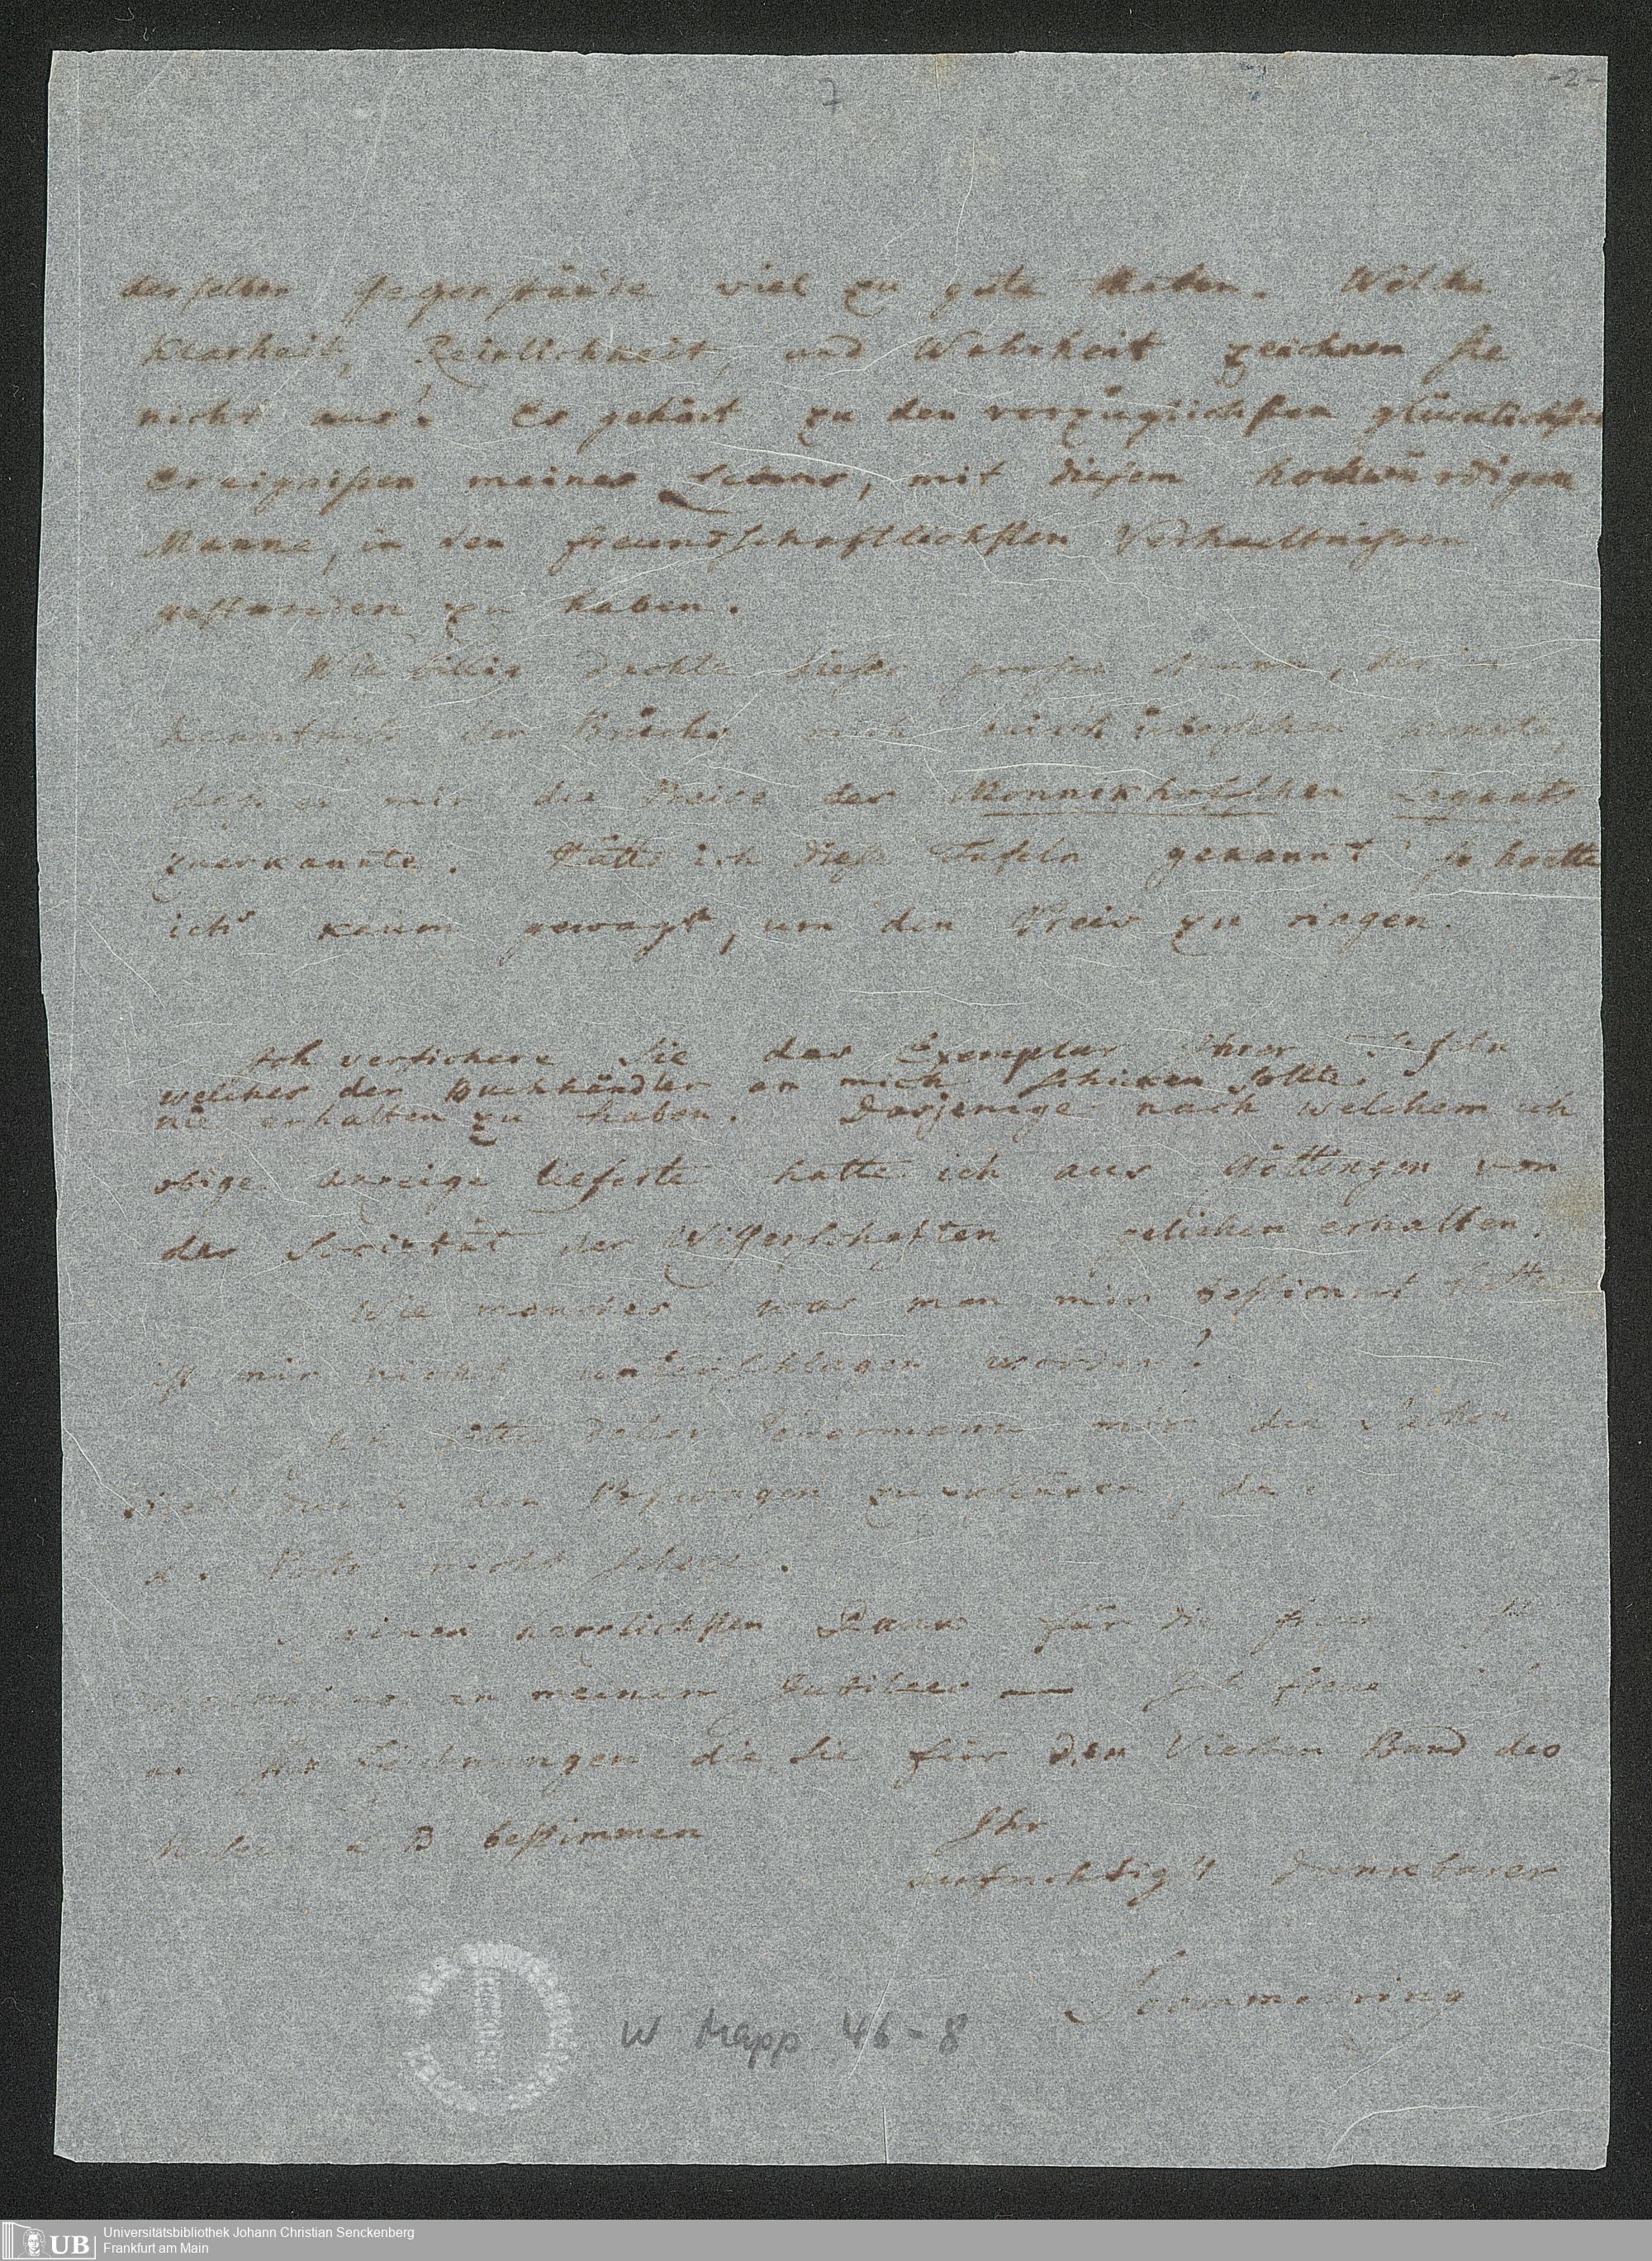 7
-2-
derselben Gegenstände viel zu gute haben. Welche
Klarheit, Reinlichkeit, und Wahrheit zeichnen sie
nicht aus! Es gehört zu den vorzüglichsten glücklichsten
Ereignißen meines Lebens, mit diesem hochwürdigen
Manne, in den freundschaftlichsten Verhaeltnißen
gestanden zu haben.
Wie billig dachte dieser große Mann, der in
Kenntniß der Brüche mich
daß er mir die Preise des Monnikhofschen Legaats
zuerkannte. Hätte ich diese Tafeln gekannt so haette
ich's kaum gewagt, um den Preis zu ringen.
Ich versichere Sie das Exemplar Ihrer Tafeln
welches der Buchhändler an mich schicken sollte
nie erhalten zu haben. Dasjenige nach welchem ich
obige Anzeige lieferte hatte ich aus Göttingen von
der Societät der Wißenschaften geliehen erhalten.
Wie manches, was man mir bestimmt hatte
ist mir nicht unterschlagen worden?
Ich bitte daher Jedermann mir die Sachen
durch den Postwagen zuzusenden, da
Porto nicht
Meinen herzlichsten Dank für die
an meinem Jubilaeo — Ich freue
die Sie für den Vierten Band des
bestimmen
Ihr
aufrichtigst dankbarer
Soemmerring
W Mapp. 46-8
UB
Universitätsbibliothek Johann Christian Senckenberg
Frankfurt am Main